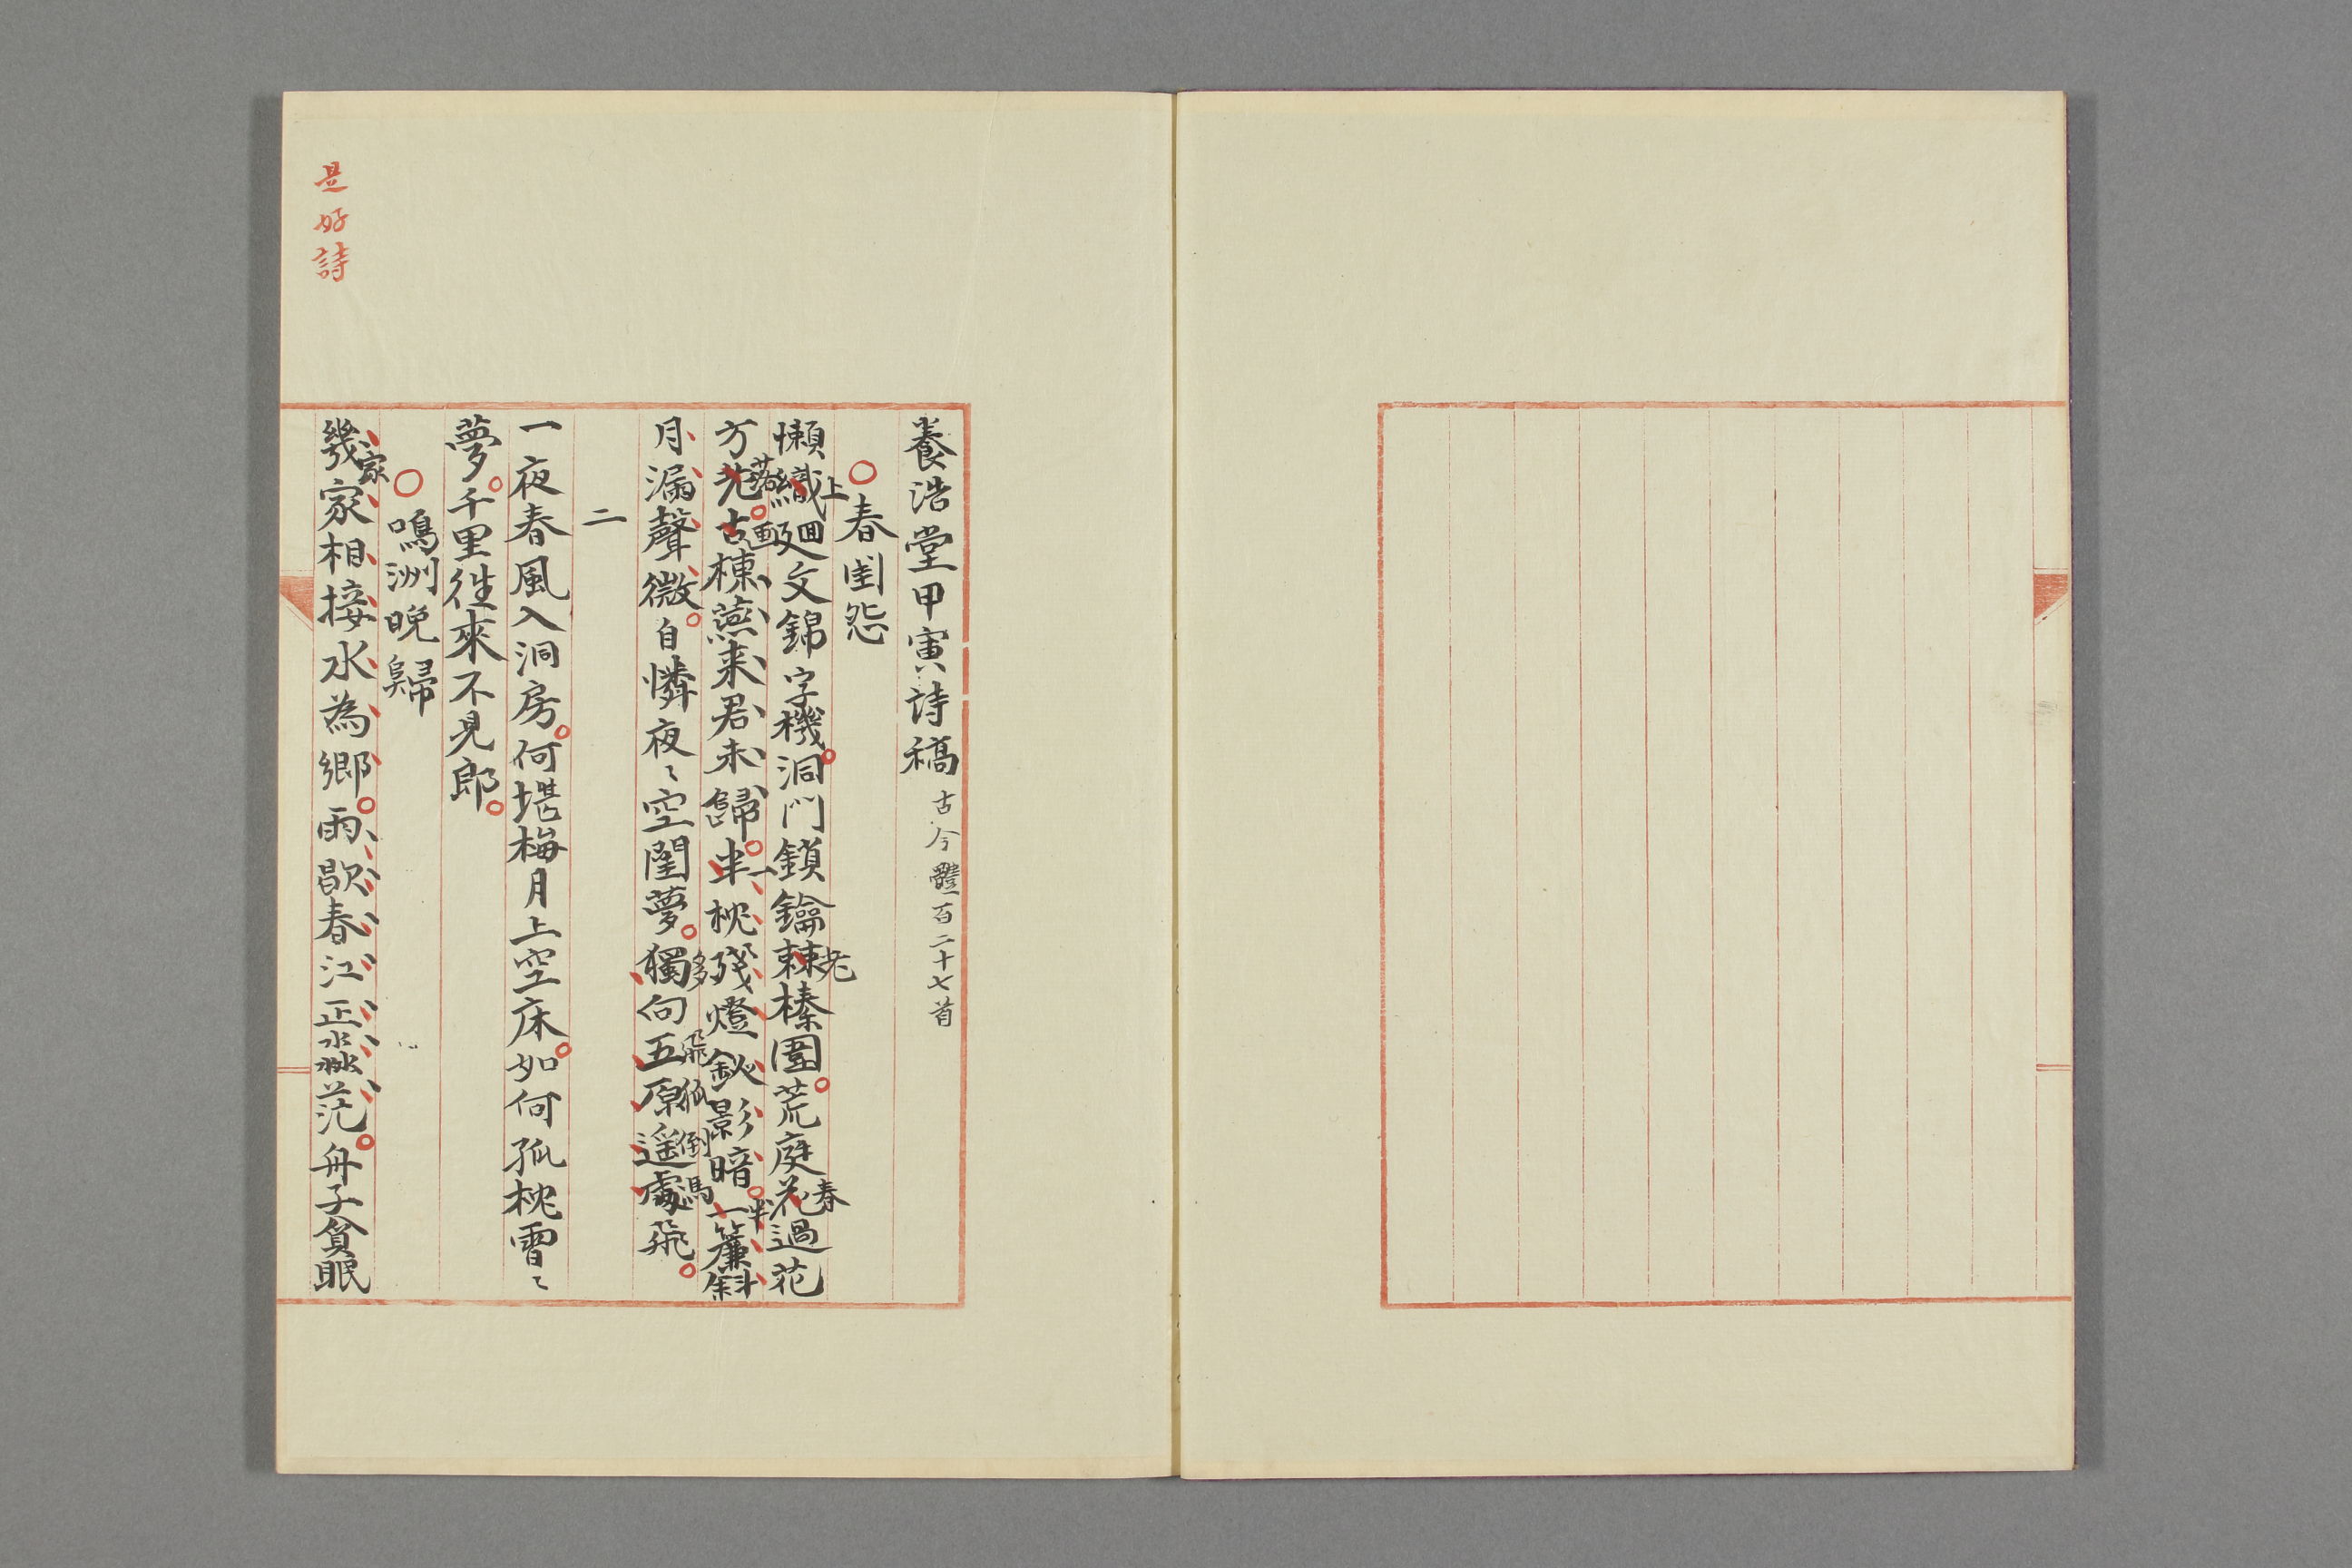 養浩堂甲寅詩稿 古今體百二十七首
春閨怨
懶織上廻文錦字機洞門鎖鑰棘老榛圍荒庭花春過花
方落古画棟燕来君未歸半一枕殘燈釵影暗一半簾斜
月漏聲微自憐夜〻空閨夢獨多向五飛原狐遥倒處馬飛
二
一夜春風入洞房何堪梅月上空床如何孤枕霄〻
夢千里徃來不見郎
鳴洲晩歸
幾家家相接水為鄉雨歇春江正淼茫舟子貧眠
是好詩